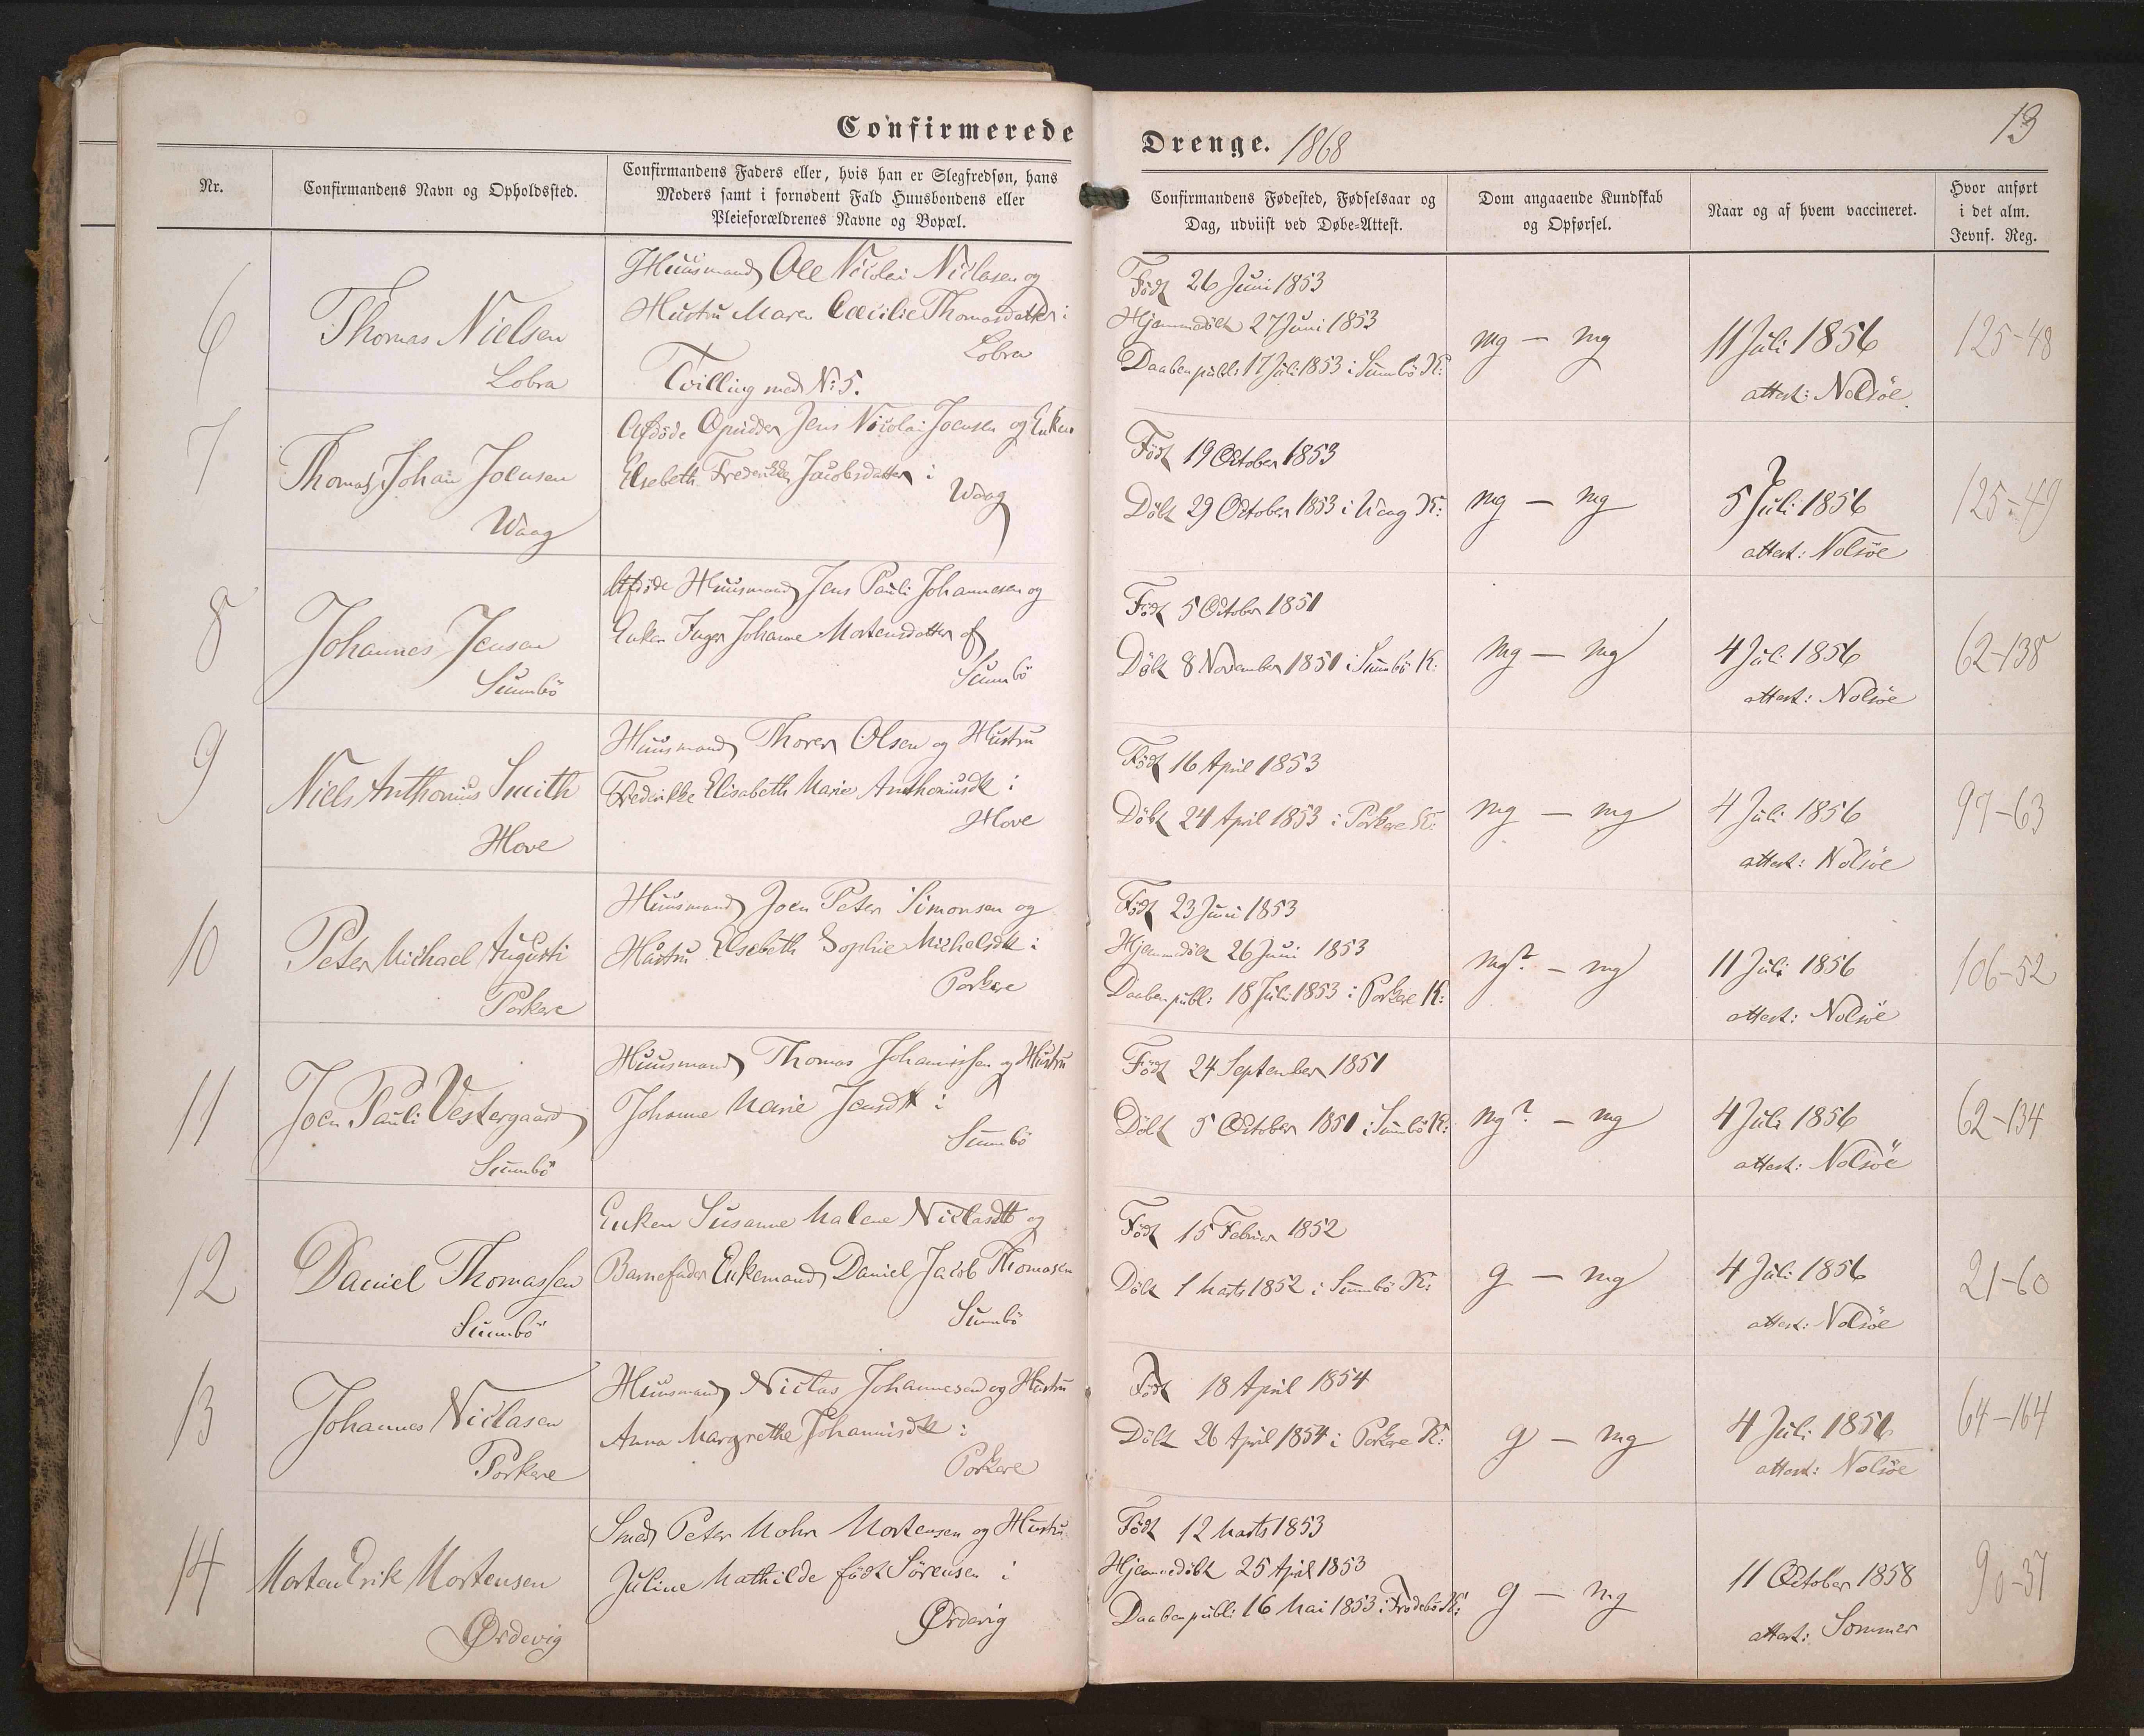 Confirmerede
Drenge. 1868
13
Nr.
Confirmandens Navn og Opholdssted.
Confirmandens Faders eller, hvis han er Slegfredsøn, hans
Moders samt i fornødent Fald Huusbondens eller
Pleieforældrenes Navne og Bopæl.
Confirmandens Fødested, Fødselsaar og
Dag, udviist ved Døbe-Attest.
Dom angaaende Kundskab
og Opførsel.
Naar og af hvem vaccineret.
Hvor anført
i det alm.
Jevnf. Reg.
6
Thomas Nielsen
Lobra
Huusmand Ole Nicolai Niclasen og
Hustru Maren Cæcilie Thomasdatter i
Lobra
Tvilling med No 5.
Født 26 Juni 1853
Hjemmedøbt 27 Juni 1853
Daaben publ: 17 Juli 1853 i Sumbö K:
mg — mg
11 Juli 1856
attest: Nolsöe
125-48
7
Thomas Johan Joensen
Waag
Afdöde Opsidder Jens Nicolai Joensen og Enken
Elsebeth Frederikke Jacobsdatter i
Waag
Født 19 October 1853
Döbt 29 October 1853 i Waag K:
mg — mg
5 Juli 1856
attest: Nolsöe
125-49
8
Johannes Jensen
Sumbö
Afdöde Huusmand Jens Pauli Johannesen og
Enken Inger Johanne Mortensdatter af
Sumbö
Født 5 October 1851
Döbt 8 November 1851 i Sumbö K:
mg — mg
4 Juli 1856
attest: Nolsöe
62-138
9
Niels Anthonius Smith
Hove
Huusmand Thorer Olsen og Hustru
Frederikke Elisabeth Marie Anthoniusdtr i
Hove
Født 16 April 1853
Döbt 24 April 1853 i Porkere K:
mg — mg
4 Juli 1856
attest: Nolsöe
97-63
10
Peter Michael Augusti
Porkere
Huusmand Joen Peter Simonsen og
Hustru Elsebeth Sophie Michelsdtr i
Porkere
Født 23 Juni 1853
Hjemmedöbt 26 Juni 1853
Daaben publ: 18 Juli 1853 i Porkere K:
mg? — mg
11 Juli 1856
attest: Nolsöe
106-52
11
Joen Pauli Vestergaard
Sumbö
Huusmand Thomas Johannissen og Hustru
Johanne Marie Jensdtr i
Sumbö
Født 24 September 1851
Döbt 5 October 1851 i Sumbö K:
mg? — mg
4 Juli 1856
attest: Nolsöe
62-134
12
Daniel Thomassen
Sumbö
Enken Susanne Malene Niclasdtt og
Barnefader Enkemand Daniel Jacob Thomasen
Sumbö
Født 15 Februar 1852
Döbt 1 Marts 1852 i Sumbö K:
g — mg
4 Juli 1856
attest: Nolsöe
21-60
13
Johannes Niclasen
Porkere
Huusmand Niclas Johannesen og Hustru
Anna Margrethe Johannisdtr i
Porkere
Født 18 April 1854
Döbt 26 April 1854 i Porkere K:
g — mg
4 Juli 1856
attest: Nolsöe
64-164
14
Morten Erik Mortensen
Ørdevig
Smed Peter Mohr Mortensen og Hustru
Juline Mathilde født Sörensen i
Ørdevig
Født 12 Marts 1853
Hjemmedöbt 25 April 1853
Daaben publ: 16 Mai 1853 i Frodebö K:
g — mg
11 October 1858
attest: Sommer
90-37